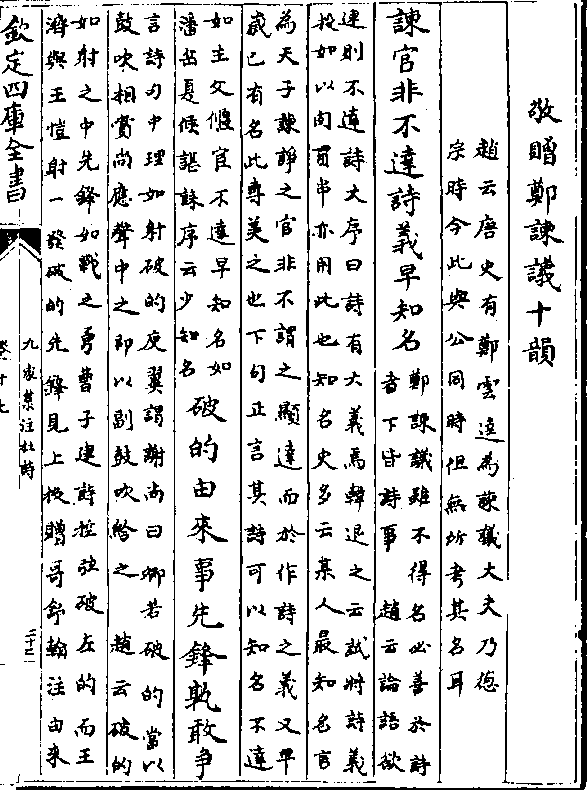 敬贈鄭諫議十韻
趙云唐史有鄭雲逵為諫議大夫乃德
宗時今此與公同時但無所考其名耳
諫官非不達詩義早知名
鄭諫議雖不得名必善於詩
者下皆詩事　趙云論語欲
速則不達詩大序曰詩有大義焉韓退之云試將詩義
授如以肉貫丳亦用此也知名史多云某人最知名官
為天子諫諍之官非不謂之顯達而於作詩之義又早
歲已有名此專美之也下句正言其詩可以知名不達
如主父偃官不達早知名如
潘岳夏侯諶誄序云少知名
破的由來事先鋒孰敢爭
言詩句中理如射破的庾翼謂謝尚曰卿若破的當以
鼓吹相賞尚應聲中之即以副鼓吹給之　趙云破的
如射之中先鋒如戰之勇曹子建詩控弦破左的而王
濟與王愷射一發破的先鋒見上投贈哥舒翰注由來
欽定四庫全書
九家集注杜詩
卷十七
二十二